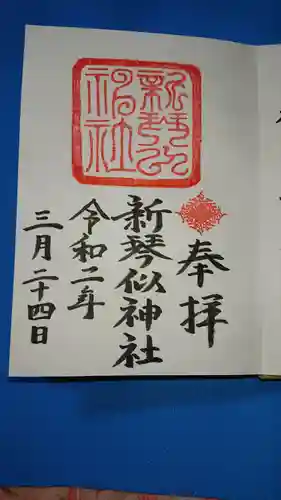 奉拝
新琴似神社
令和二年
三月二十四日
新琴似
神社